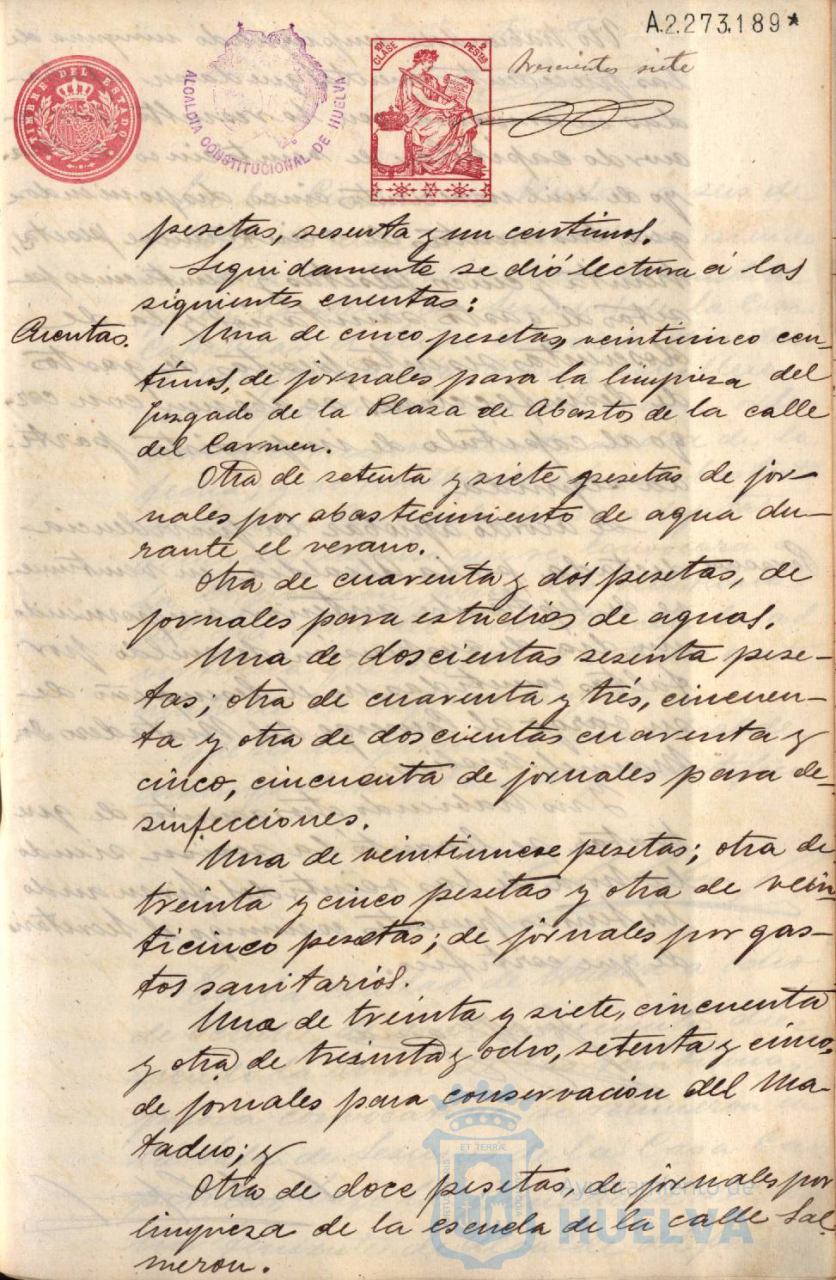 A2.273.189*
TIMBRE DEL ESTADO
ALCALDIA CONSTITUCIONAL DE HUELVA
10ª CLASE 2 PESTAS
trescientos siete
pesetas, sesenta y un centimos.
Seguidamente se dió lectura á las
siguientes cuentas:
Cuentas.
Una de cinco pesetas, veinticinco cen-
timos, de jornales para la limpieza del
Juzgado de la Plaza de Abastos de la calle
del Carmen.
Otra de setenta y siete pesetas de jor-
nales por abastecimiento de agua du-
rante el verano.
Otra de cuarenta y dós pesetas, de
jornales para estudios de aguas.
Una de doscientas sesenta pese-
tas; otra de cuarenta y trés, cincuen-
ta y otra de doscientas cuarenta y
cinco, cincuenta de jornales para de-
sinfecciones.
Una de pesetas; otra de
treinta y cinco pesetas y otra de vein-
ticinco pesetas; de jornales por gas-
tos sanitarios.
Una de treinta y siete, cincuenta
y otra de treinta y ocho, setenta y cinco,
de jornales para conservacion del Ma-
tadero; y
Otra de doce pesetas, de jornales por
limpieza de la escuela de la calle Sal-
meron.
ET TERRÆ
Ayuntamiento de
HUELVA